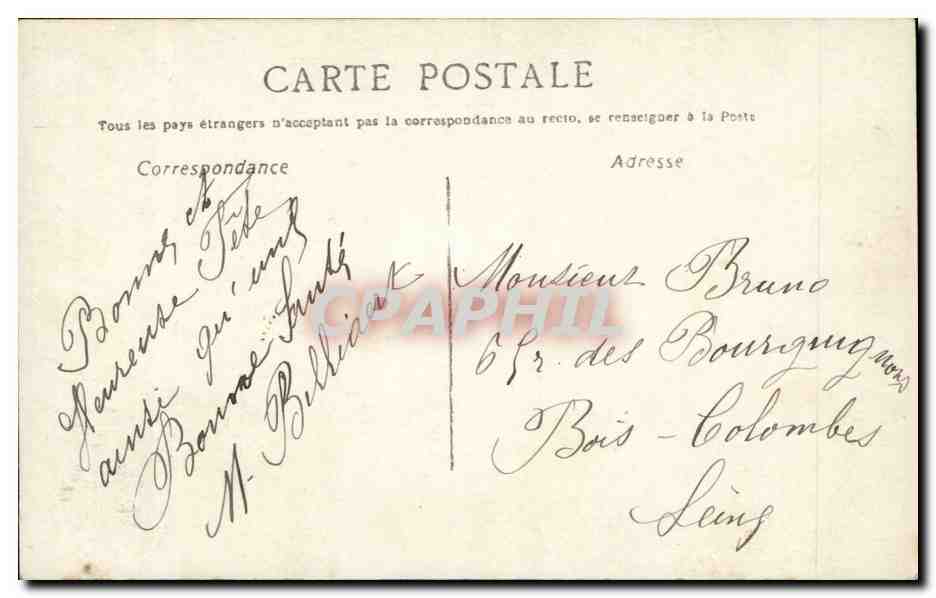 CARTE POSTALE
Tous les pays étrangers n'acceptant pas la correspondance au recto, se renseigner à la Poste
Correspondance
Adresse
Bonne et
Heureuse Fête
ainsi qu'une
Bonne Santé
M.
Monsieur Bruno
65 r. des Bourguignons
Bois-Colombes
Seine
CPAPHIL